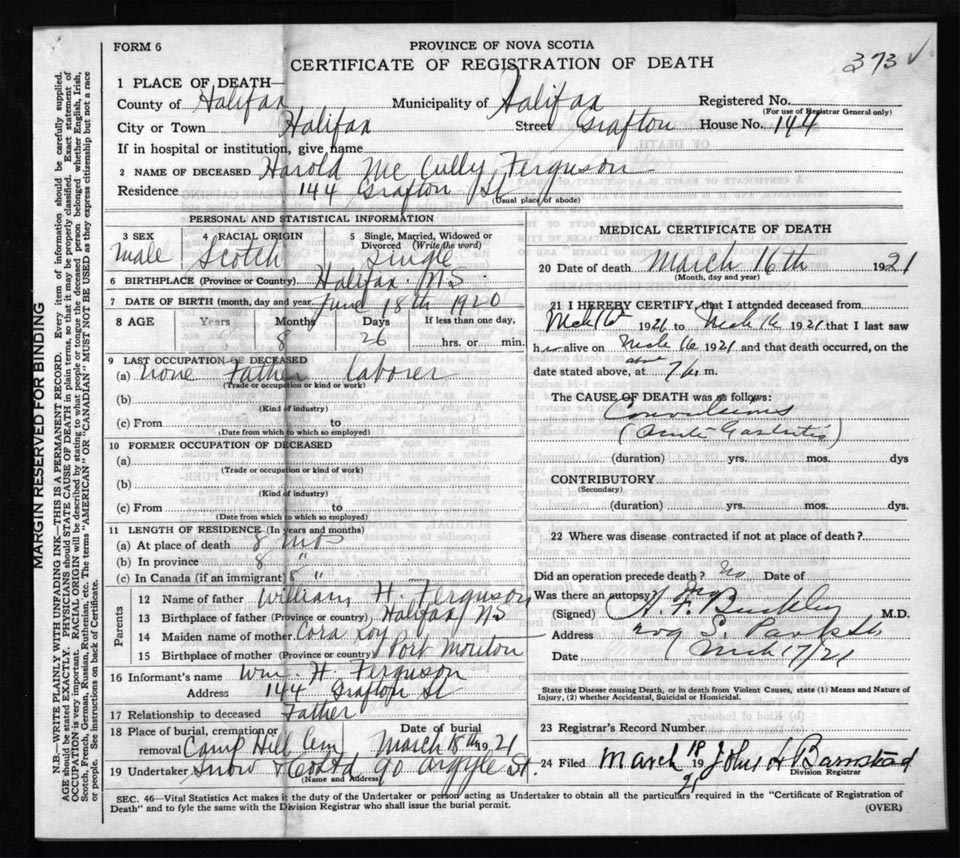 FORM 6
PROVINCE OF NOVA SCOTIA
CERTIFICATE OF REGISTRATION OF DEATH
373 ✓
1 PLACE OF DEATH—
County of Halifax Municipality of Halifax Registered No.
(For use of Registrar General only)
City or Town Halifax Street Grafton House No. 144
If in hospital or institution, give name
2 NAME OF DECEASED Harold Mc Cully Ferguson
Residence 144 Grafton St
(Usual place of abode)
PERSONAL AND STATISTICAL INFORMATION
3 SEX 4 RACIAL ORIGIN 5 Single, Married, Widowed or Divorced (Write the word)
Male Scotch Single
6 BIRTHPLACE (Province or Country) Halifax N S
7 DATE OF BIRTH (month, day and year) June 18th 1920
8 AGE Years Months Days If less than one day,
8 26 hrs. or min.
9 LAST OCCUPATION OF DECEASED
(a) None Father laborer
(Trade or occupation or kind or work)
(b)
(Kind of industry)
(c) From to
(Date from which to which so employed)
10 FORMER OCCUPATION OF DECEASED
(a)
(Trade or occupation or kind of work)
(b)
(Kind of industry)
(c) From to
(Date from which to which so employed)
11 LENGTH OF RESIDENCE (In years and months)
(a) At place of death 8 mos
(b) In province 8 "
(c) In Canada (if an immigrant) 8 "
Parents
12 Name of father William H. Ferguson
13 Birthplace of father (Province or country) Halifax NS
14 Maiden name of mother Cora Loy
15 Birthplace of mother (Province or country) Port Mouton
16 Informant's name Wm. H. Ferguson
Address 144 Grafton St
17 Relationship to deceased Father
18 Place of burial, cremation or removal Camp Hill Cem Date of burial March 18th 1921
19 Undertaker Snow & Co Ltd 90 Argyle St.
(Name and Address)
MEDICAL CERTIFICATE OF DEATH
20 Date of death March 16th 1921
(Month, day and year)
21 I HEREBY CERTIFY, that I attended deceased from
Mch 16 1921 to Mch 16 1921 that I last saw
h alive on Mch 16 1921 and that death occurred, on the
date stated above, at about 7 m.
The CAUSE OF DEATH was as follows:
Convulsions
(Acute Gastritis)
(duration) yrs. mos. dys
CONTRIBUTORY
(Secondary)
(duration) yrs. mos. dys.
22 Where was disease contracted if not at place of death?
Did an operation precede death? No Date of
Was there an autopsy? No
(Signed) A. F. Buckley M.D.
Address 209 S. Park St
Date Mch 17/21
State the Disease causing Death, or in death from Violent Causes, state (1) Means and Nature of
Injury, (2) whether Accidental, Suicidal or Homicidal.
23 Registrar's Record Number
24 Filed March 18 1921 John H Barnstead
Division Registrar
SEC. 46—Vital Statistics Act makes it the duty of the Undertaker or person acting as Undertaker to obtain all the particulars required in the "Certificate of Registration of
Death" and to fyle the same with the Division Registrar who shall issue the burial permit.
(OVER)
MARGIN RESERVED FOR BINDING
N.B.—WRITE PLAINLY WITH UNFADING INK—THIS IS A PERMANENT RECORD. Every item of information should be carefully supplied.
AGE should be stated EXACTLY. PHYSICIANS should STATE CAUSE OF DEATH in plain terms, so that it may be properly classified. Exact statement of
OCCUPATION is very important. RACIAL ORIGIN will be described by stating to what people or tongue the deceased person belonged whether English, Irish,
Scotch, French, German, Russian, Ruthenian, etc. The terms "AMERICAN" OR "CANADIAN" MUST NOT BE USED as they express citizenship but not a race
or people. See instructions on back of Certificate.